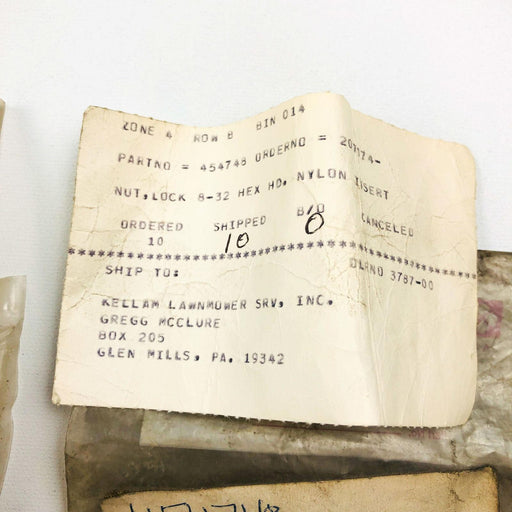 ZONE 4 ROW B BIN 014
PARTNO = 454748 ORDERNO = 207174-
NUT,LOCK 8-32 HEX HD, NYLON INSERT
ORDERED SHIPPED B/O CANCELED
10 10 0
****************************************
SHIP TO: DLRNO 3787-00
KELLAM LAWNMOWER SRV, INC.
GREGG MCCLURE
BOX 205
GLEN MILLS, PA. 19342